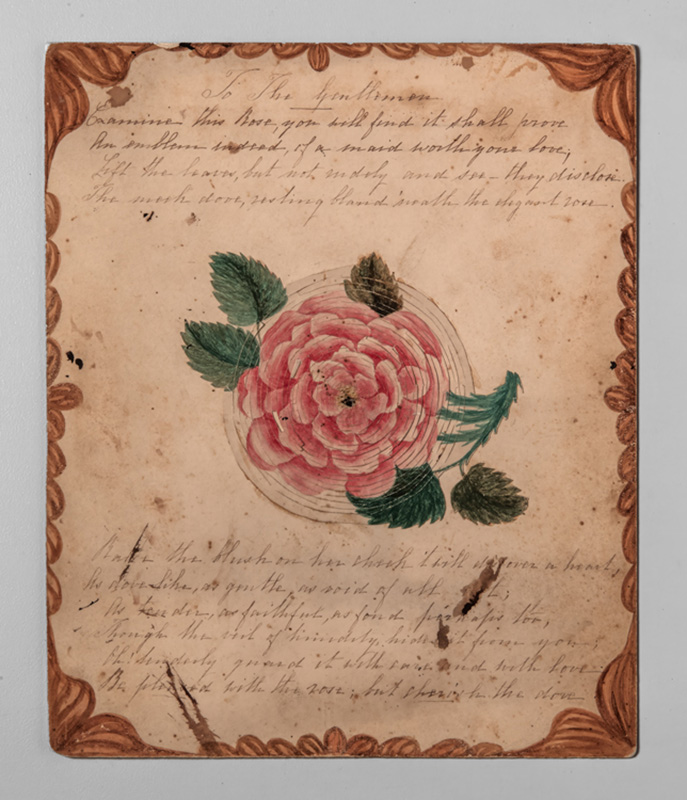 To The Gentlemen
Examine this Rose, you will find it shall prove
An emblem indeed, of a maid worth your love,
Lift the leaves, but not rudely and see - they disclose
The meek dove, resting bland 'neath the elegant rose.
Raise the blush on her cheek t'will discover a heart,
As dove like, as gentle, as void of all
As tender, as faithful, as fond perhaps too,
Though the veil of timidity, hides it from you;
Oh! tenderly guard it with care and with love
Be pleased with the rose; but cherish the dove